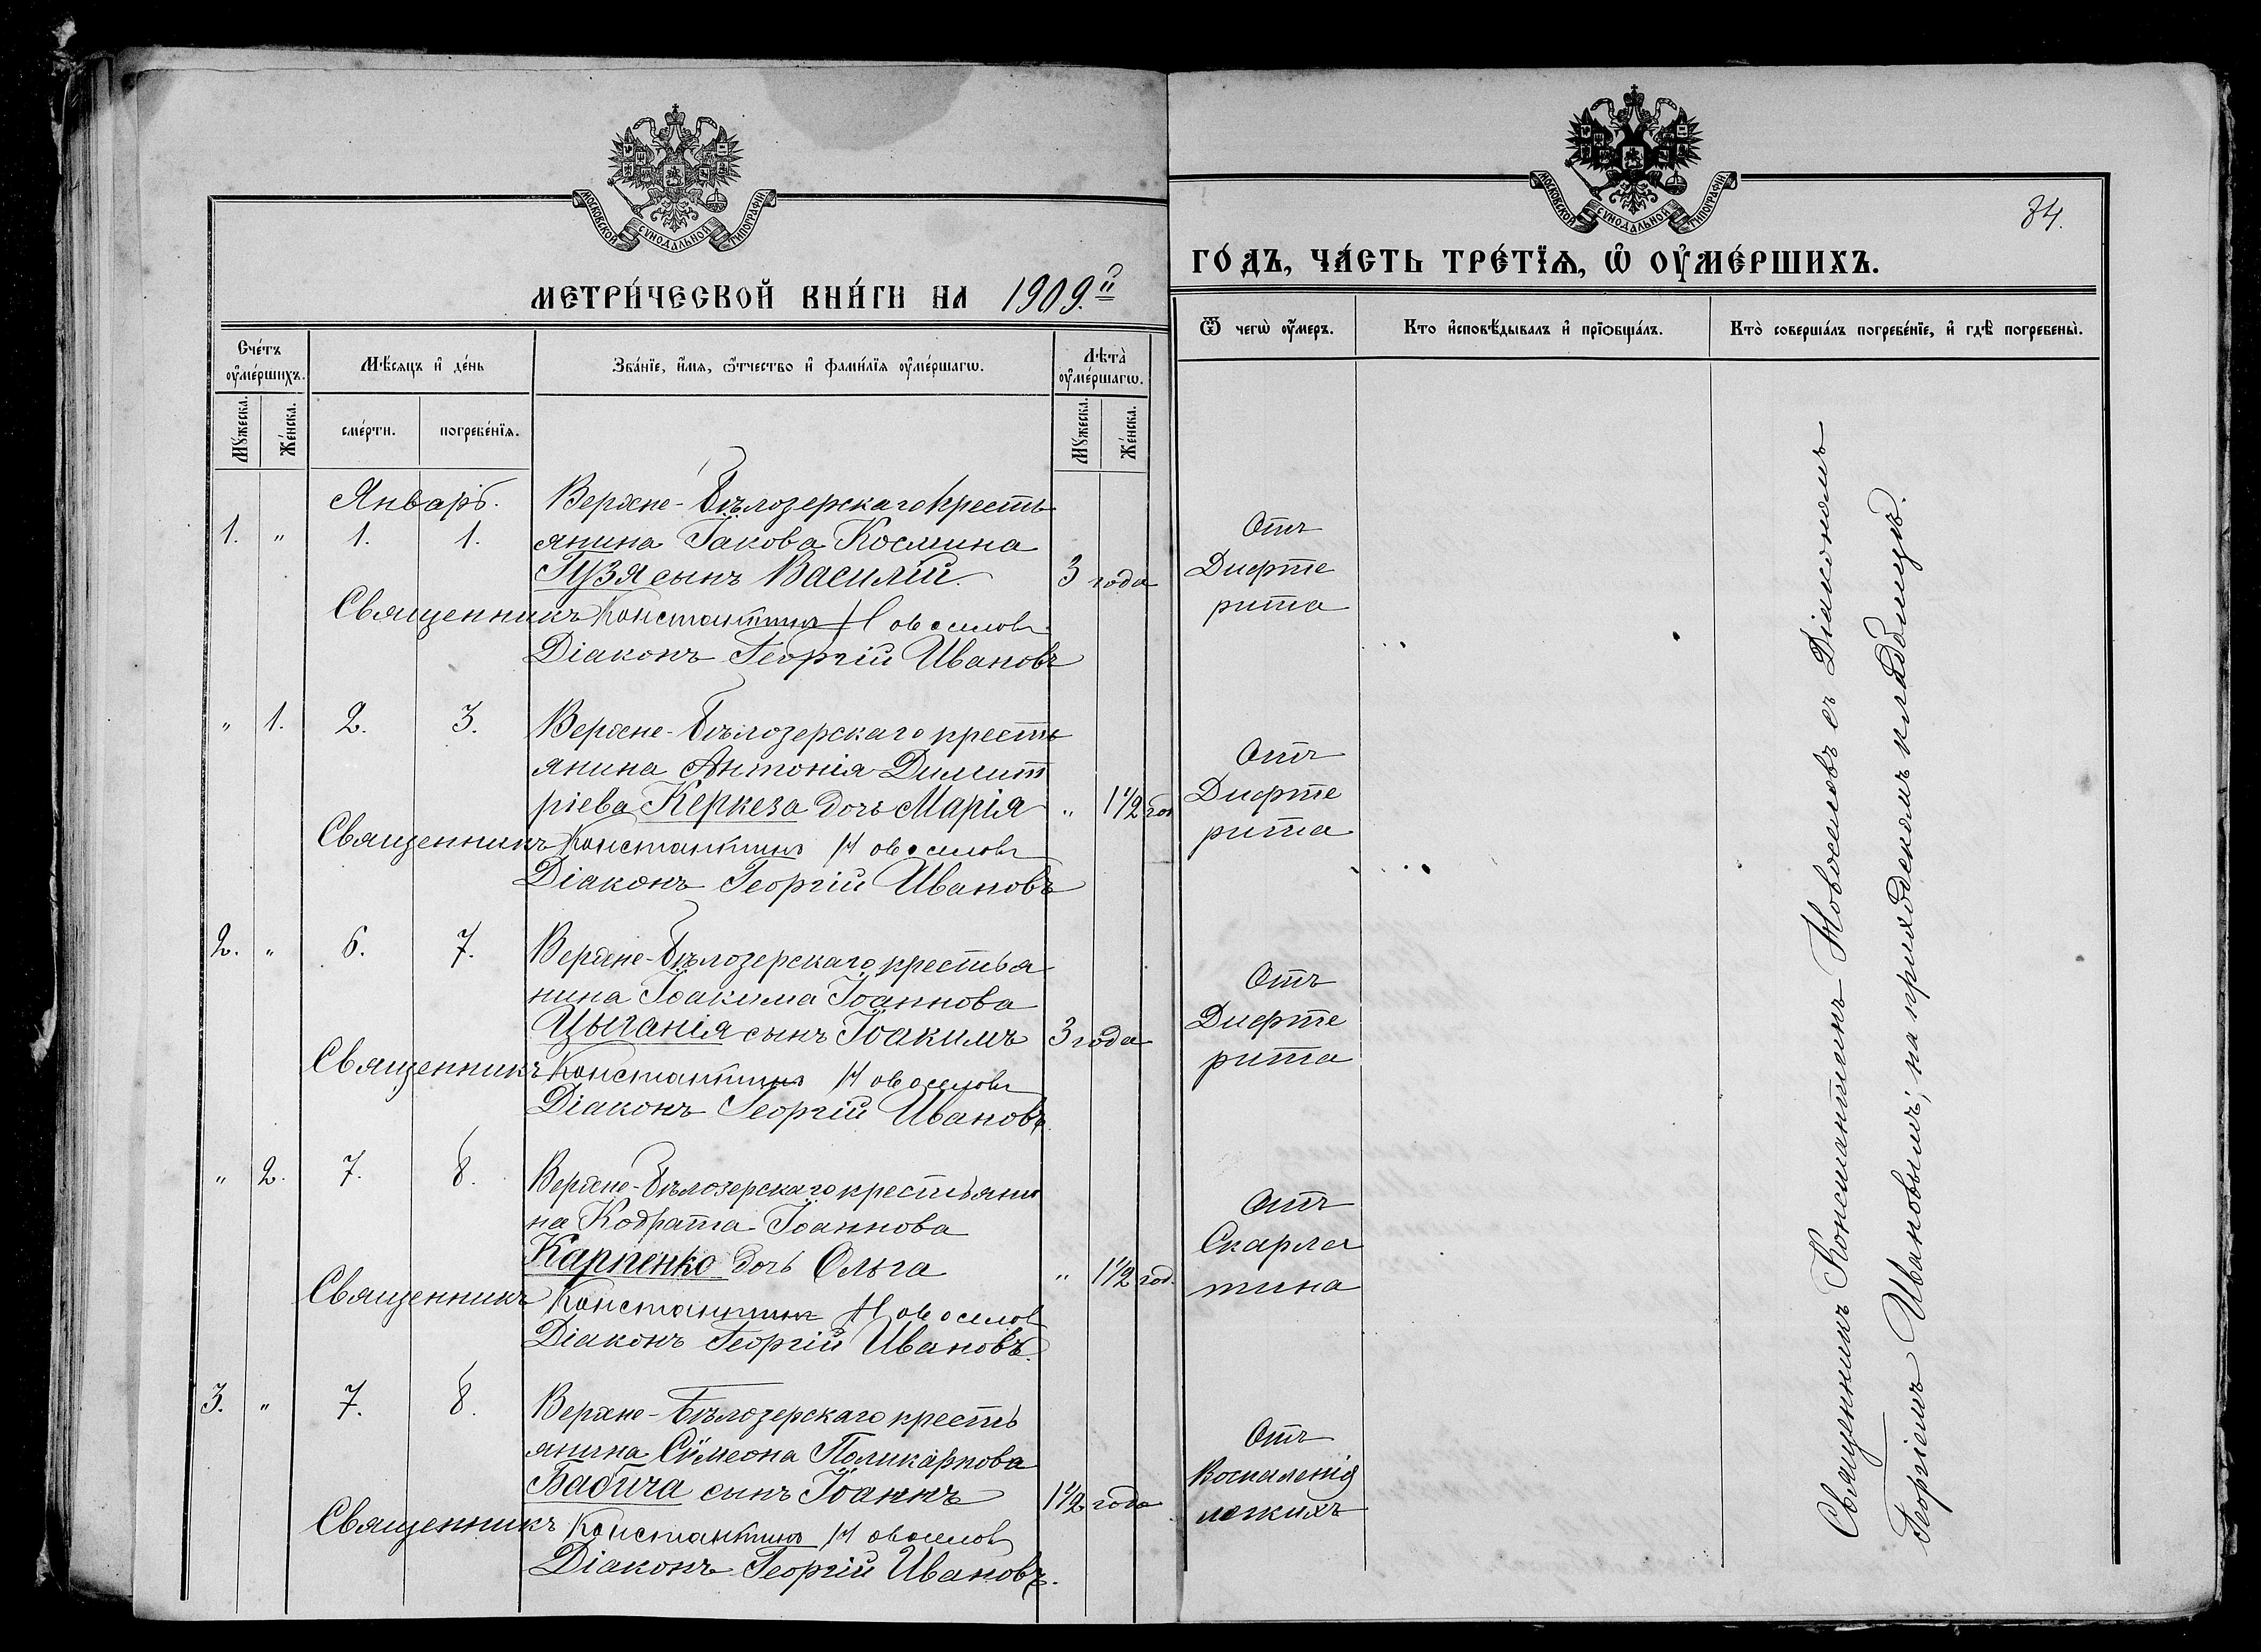 МОСКОВСКОЙ СУНОДАЛЬНОЙ ТИПОГРАФІИ
МЕТРИ́ЧЕСКОЙ КНИ́ГИ НА 1909.й
Сче́тъ оу҆ме́ршихъ.
Мѣ́сяцъ и҆ де́нь
Зва́нїе, и҆́мя, ѻ҆́тчество и҆ фами́лїя оу҆ме́ршагѡ.
Лѣта̀ оу҆ме́ршагѡ.
Мꙋ́жеска.
Же́нска.
сме́рти.
погребе́нїя.
Мꙋ́жеска.
Же́нска.
Январь. Верхне-Бѣлозерскаго кресть
1. " 1. 1. янина Іакова Космина
Гузя сынъ Василій. 3 года
Священникъ Константинъ Новоселовъ
Діаконъ Георгій Ивановъ
" 1. 2. 3. Верхне-Бѣлозерскаго кресть
янина Антонія Димит
ріева Керкеза дочь Марія " 1 1/2 год
Священникъ Константинъ Новоселовъ
Діаконъ Георгій Ивановъ
2. " 6. 7. Верхне-Бѣлозерскаго крестья
нина Іоакима Іоаннова
Цыганія сынъ Іоакимъ 3 года
Священникъ Константинъ Новоселовъ
Діаконъ Георгій Ивановъ.
" 2. 7. 8. Верхне-Бѣлозерскаго крестьяни
на Кодрата Іоаннова
Карпенко дочь Ольга " 1 1/2 год.
Священникъ Константинъ Новоселов
Діаконъ Георгій Ивановъ.
3. " 7. 8. Верхне-Бѣлозерскаго кресть
янина Сѵмеона Поликарпова
Бабича сынъ Іоаннъ 1 1/2 года
Священникъ Константинъ Новоселов
Діаконъ Георгій Ивановъ.
МОСКОВСКОЙ СУНОДАЛЬНОЙ ТИПОГРАФІИ
34.
ГО́ДЪ, ЧА́СТЬ ТРЕ́ТЇѦ, Ѡ҆ ОУ҆МЕ́РШИХЪ.
Ѿ чегѡ̀ оу҆́меръ.
Кто и҆сповѣ́дывалъ и҆ прїѡбща́лъ.
Кто̀ соверша́лъ погребе́нїе, и҆ гдѣ̀ погребены̀.
Отъ
Дифте
рита
Отъ
Дифте
рита
Отъ
Дифте
рита
Отъ
Скарла
тина
Отъ
Воспаленія
легкихъ
Священникъ Константинъ Новоселовъ съ Діакономъ
Георгіемъ Ивановымъ; на приходскомъ кладбищѣ.